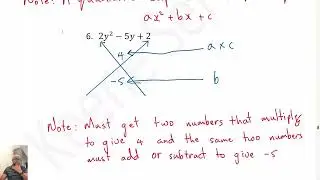 ax² + bx + c
6. 2y² – 5y + 2
4
a x c
-5
b
Note: Must get two numbers that multiply
to give 4 and the same two numbers
must add or subtract to give -5